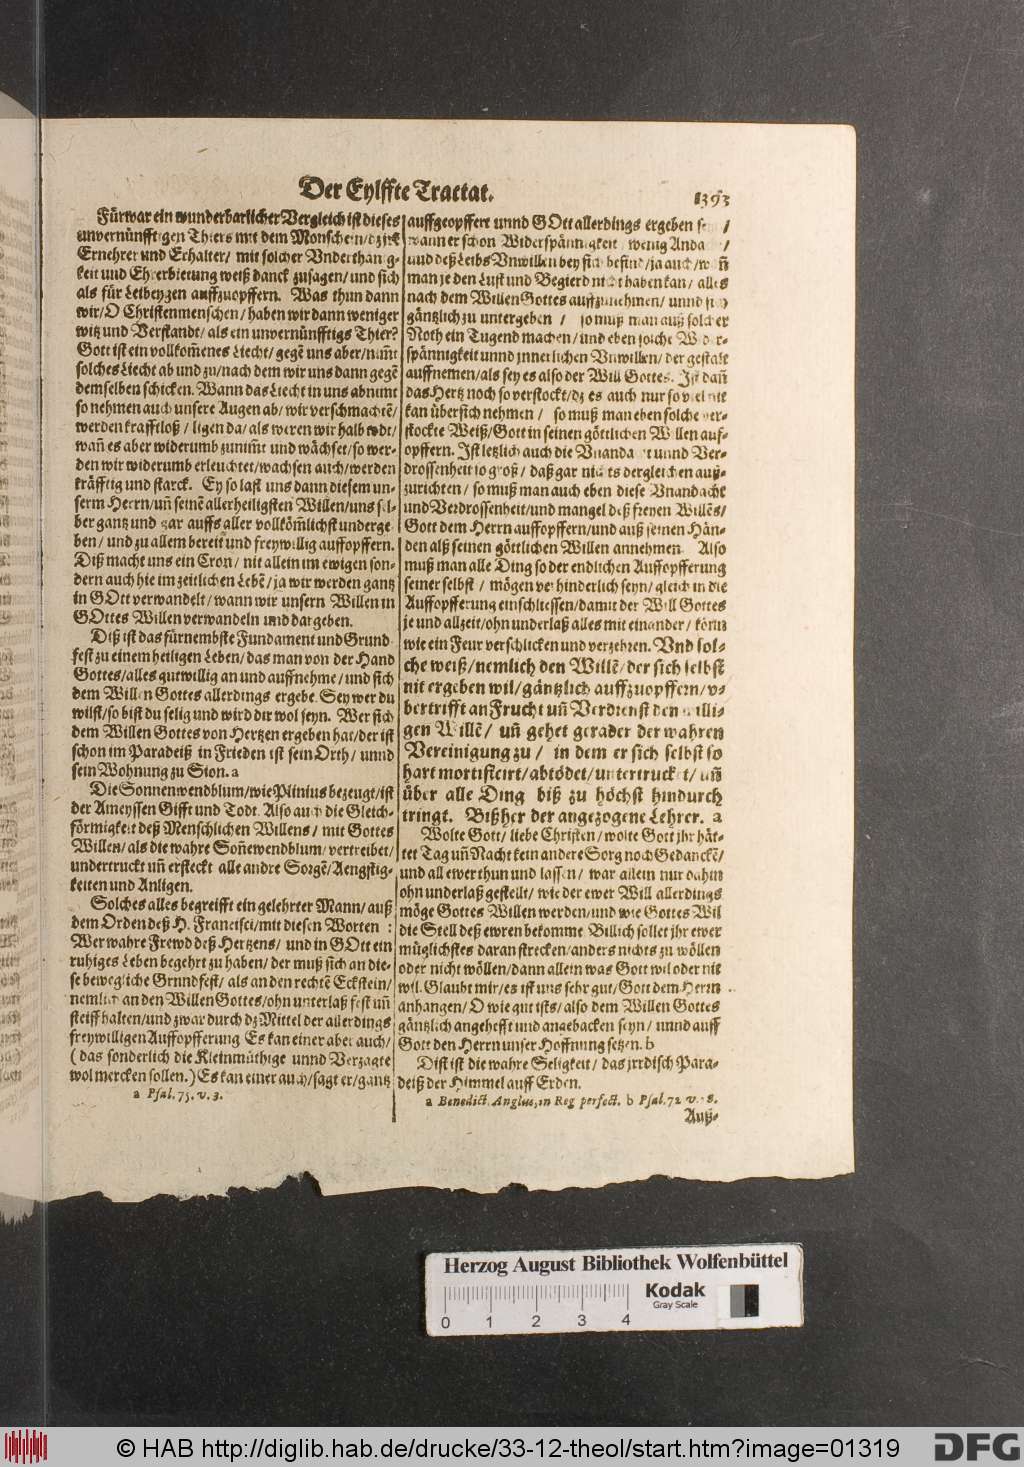 Der Eylffte Tractat.
1393
Fürwar ein wunderbarlicher Vergleich ist dieses
unvernünfftigen Thiers mit dem Monschein/dz jre
Ernehrer und Erhalter/ mit solcher Underthänig-
keit und Ehrerbietung weiß danck zusagen/ und sich
als für Leibeygen auffzuopffern. Was thun dann
wir/O Christenmenschen/ haben wir dann weniger
witz und Verstandt/ als ein unvernünfftigs Thier?
Gott ist ein vollkom̃enes Liecht/ gegē uns aber/nim̃t
solches Liecht ab und zu/nach dem wir uns dann gegē
demselben schicken. Wann das Liecht in uns abnimt
so nehmen auch unsere Augen ab/ wir verschmachtē/
werden krafftloß/ ligen da/ als weren wir halb todt/
wañ es aber widerumb zunim̃t und wächset/so wer-
den wir widerumb erleuchtet/wachsen auch/werden
kräfftig und starck. Ey so last uns dann diesem un-
serm Herrn/uñ seinē allerheiligsten Willen/uns sel-
ber gantz und gar auffs aller vollköm̃lichst underge
ben/ und zu allem bereit und freywillig auffopffern.
Diß macht uns ein Cron/ nit allein im ewigen son-
dern auch hie im zeitlichen Lebē/ ja wir werden gantz
in GOtt verwandelt/ wann wir unsern Willen in
GOttes Willen verwandeln und dargeben.
Diß ist das fürnembste Fundament und Grund
fest zu einem heiligen Leben/das man von der Hand
Gottes/alles gutwillig an und auffnehme/ und sich
dem Willen Gottes allerdings ergebe. Sey wer du
wilst/so bist du selig und wird dir wol seyn. Wer sich
dem Willen Gottes von Hertzen ergeben hat/der ist
schon im Paradeiß in Frieden ist sein Orth/ unnd
sein Wohnung zu Sion. a
Die Sonnenwendblum/wie Plinius bezeugt/ist
der Ameyssen Gifft und Todt. Also auch die Gleich-
förmigkeit deß Menschlichen Willens/ mit Gottes
Willen/ als die wahre Soñewendblum/vertreibet/
undertruckt uñ ersteckt alle andre Sorgē/Aengstig-
keiten und Anligen.
Solches alles begreifft ein gelehrter Mann/ auß
dem Orden deß H. Francisci/mit diesen Worten :
Wer wahre Frewd deß Hertzens/ und in GOtt ein
ruhiges Leben begehrt zu haben/ der muß sich an die-
se bewegliche Grundfest/ als an den rechtē Eckstein/
nemlich an den Willen Gottes/ohn unterlaß fest uñ
steiff halten/und zwar durch dz Mittel der allerdings
freywilligen Auffopfferung Es kan einer aber auch/
(das sonderlich die Kleinmüthige unnd Verzagte
wol mercken sollen.) Es kan einer auch/sagt er/gantz
a Psal. 75. v. 3.
auffgeopffert unnd GOtt allerdings ergeben seyn/
wann er schon Widerspännigkeit/ wenig Andacht/
und deß Leibs Unwillen bey sich befind/ja auch/wañ
man je den Lust und Begierd nicht haben kan/ alles
nach dem Willen Gottes auffzunehmen/ unnd sich
gäntzlich zu untergeben/ so muß man auß solcher
Noth ein Tugend machen/ und eben solche Wider-
spännigkeit unnd jnnerlichen Unwillen/ der gestalt
auffnemen/als sey es also der Will Gottes. Ist dañ
das Hertz noch so verstockt/dz es auch nur so viel nit
kan übersich nehmen/ so muß man eben solche ver-
stockte Weiß/Gott in seinen göttlichen Willen auf-
opffern. Ist letzlich auch die Unandacht unnd Ver-
drossenheit so groß/ daß gar nichts dergleichen auß-
zurichten/ so muß man auch eben diese Unandacht
und Verdrossenheit/und mangel deß freyen Willēs/
Gott dem Herrn auffopffern/und auß seinen Hän-
den alß seinen göttlichen Willen annehmen. Also
muß man alle Ding so der endlichen Auffopfferung
seiner selbst/ mögen verhinderlich seyn/ gleich in die
Auffopfferung einschliessen/damit der Will Gottes
je und allzeit/ohn underlaß alles mit einander/ könn
wie ein Feur verschlicken und verzehren. Und sol-
che weiß/nemlich den Willē/der sich selbst
nit ergeben wil/gäntzlich auffzuopffern/ü-
bertrifft an Frucht uñ Verdienst den willi-
gen Willē/ uñ gehet gerader der wahren
Vereinigung zu/ in dem er sich selbst so
hart mortificirt/abtödet/untertrucket/ uñ
über alle Ding biß zu höchst hindurch
tringt. Bißher der angezogene Lehrer. a
Wolte Gott/ liebe Christen/ wolte Gott jhr hät-
tet Tag uñ Nacht kein andere Sorg noch Gedanckē/
und all ewer thun und lassen/ war allein nur dahin
ohn underlaß gestellt/ wie der ewer Will allerdings
möge Gottes Willen werden/und wie Gottes Wil
die Stell deß ewren bekomme. Billich sollet jhr ewer
müglichstes daran strecken/anders nichts zu wöllen
oder nicht wöllen/dann allein was Gott wil oder nit
wil. Glaubt mir/es ist uns sehr gut/Gott dem Herrn
anhangen/O wie gut ists/also dem Willen Gottes
gäntzlich angehefft und angebacken seyn/ unnd auff
Gott den Herrn unser Hoffnung setzen. b
Dist ist die wahre Seligkeit/ das jrrdisch Para-
deiß der Himmel auff Erden.
a Benedict. Anglus, in Reg perfect. b Psal. 72 v. 8.
Auß-
Herzog August Bibliothek Wolfenbüttel
0 1 2 3 4
Kodak
Gray Scale
© HAB http://diglib.hab.de/drucke/33-12-theol/start.htm?image=01319
DFG